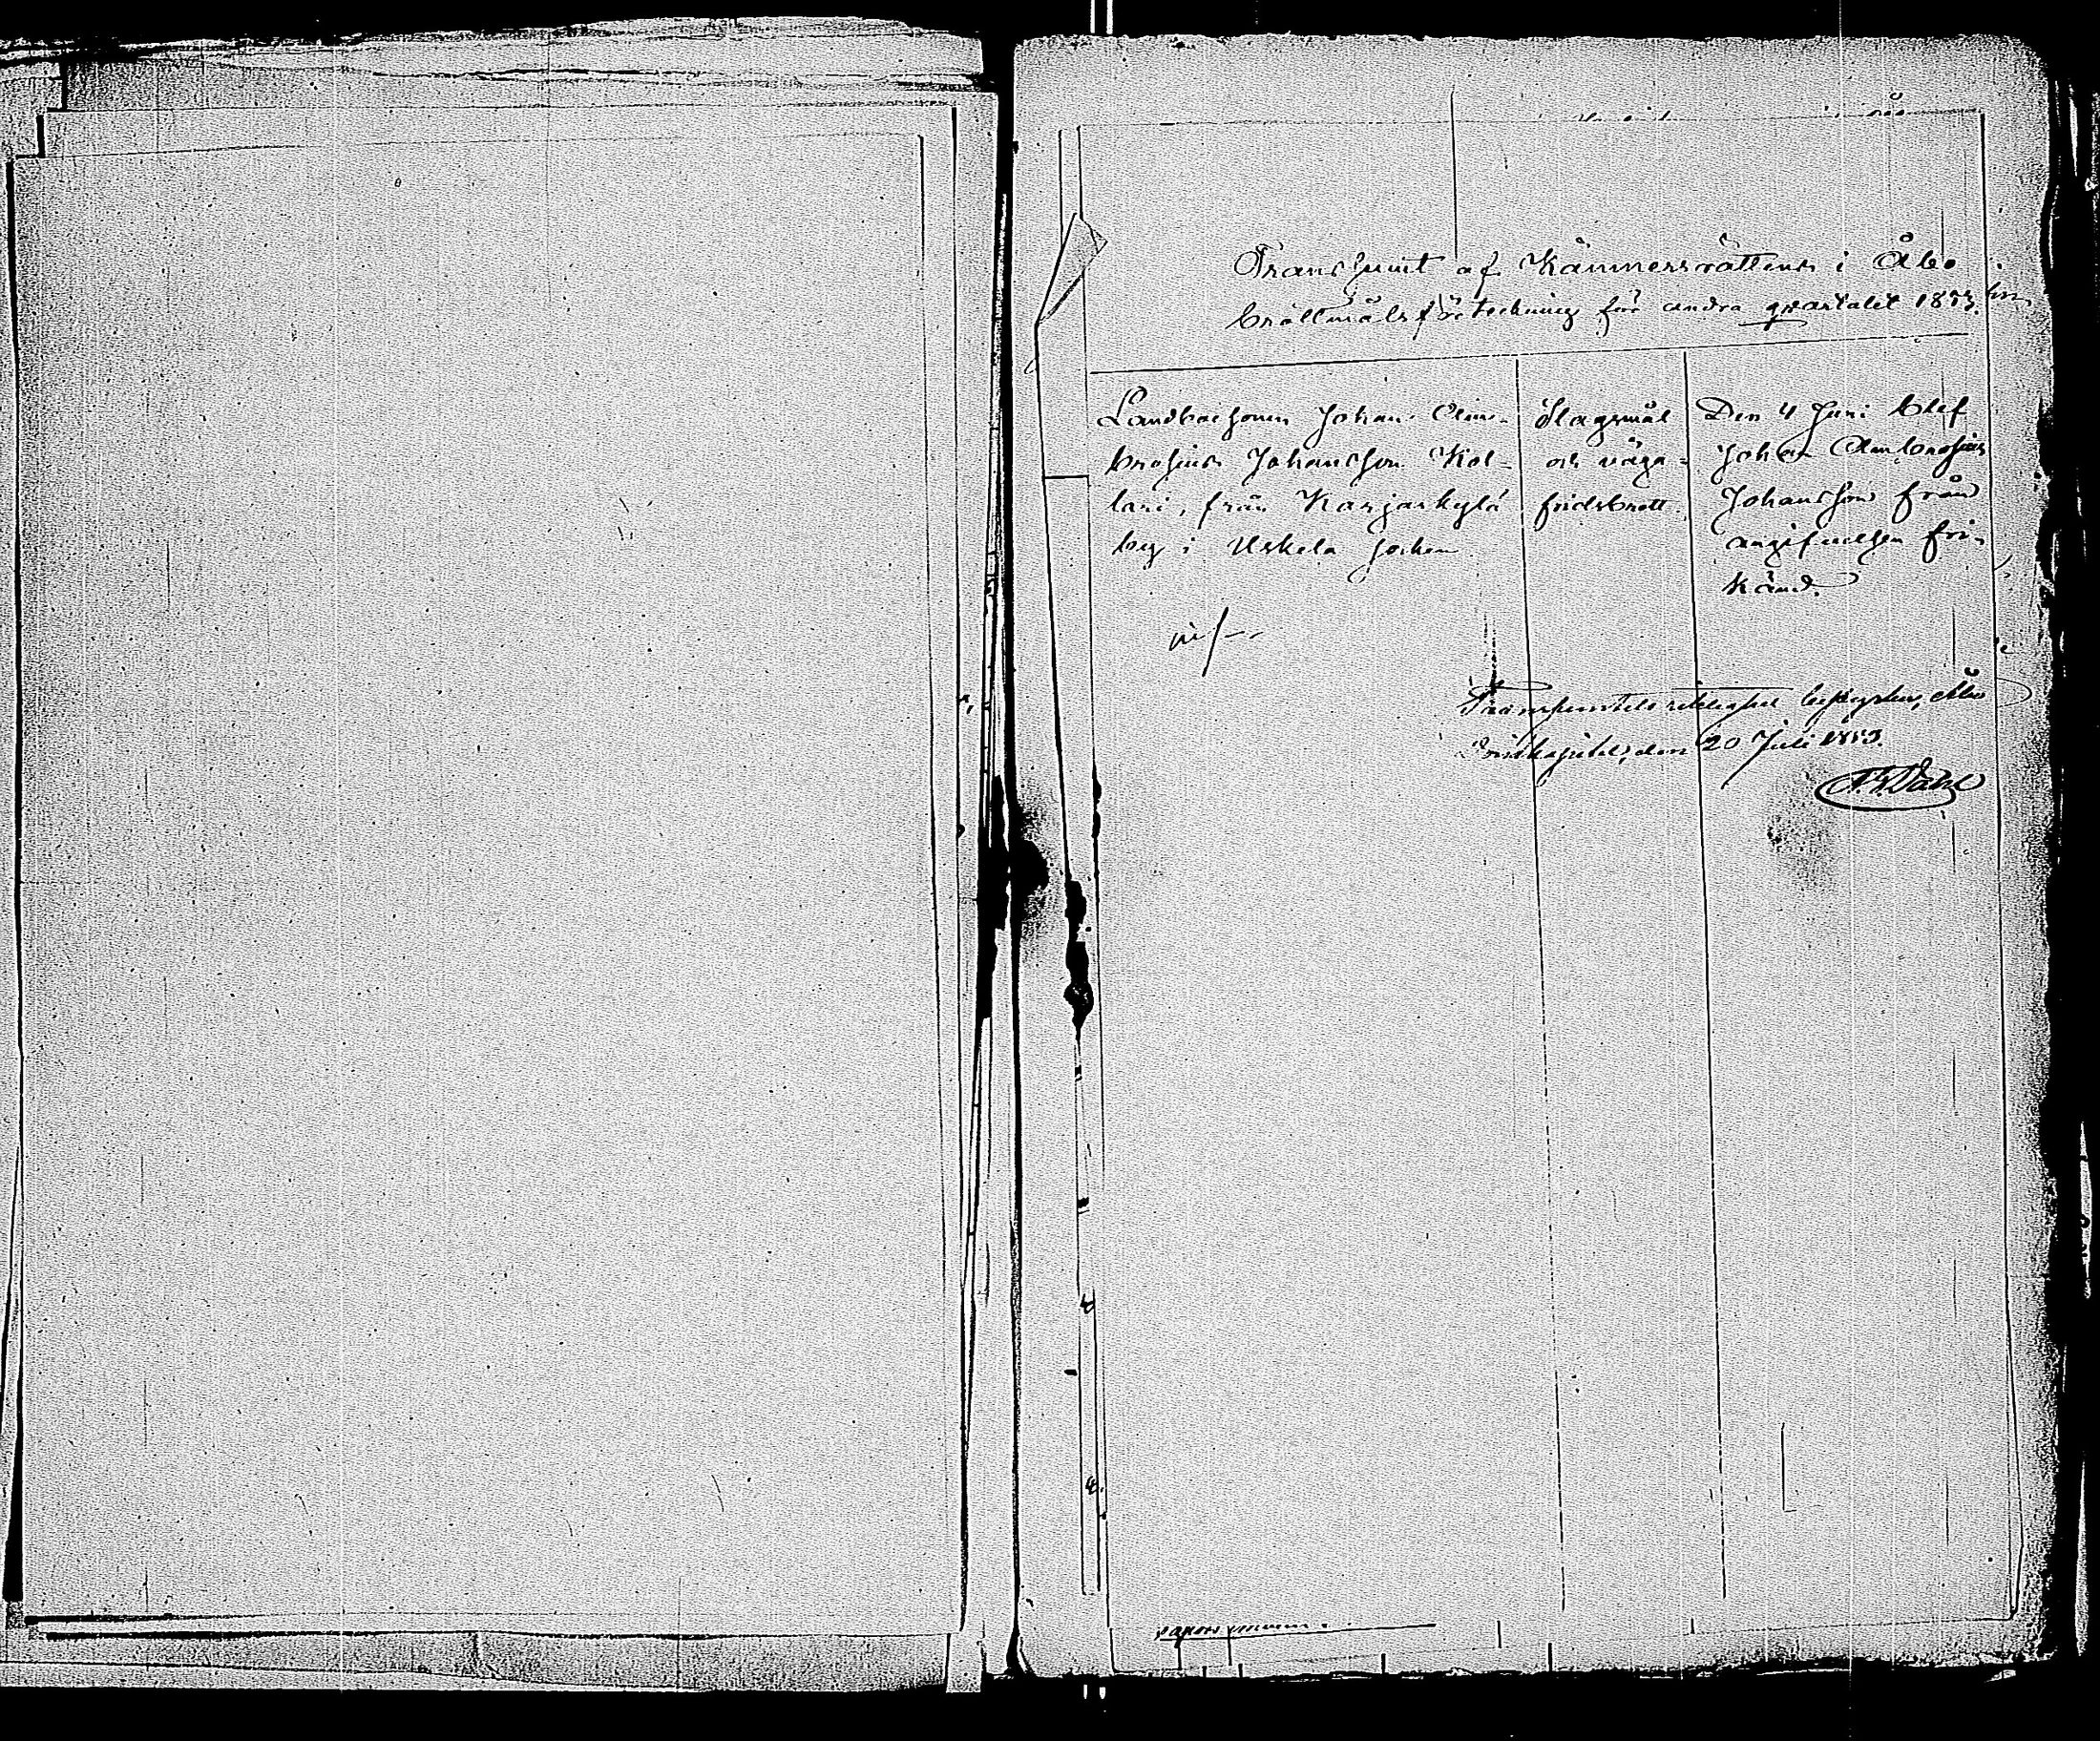 Transsumt af Kämnersrättens i Åbo
brottmålsförteckning för andra qvartalet 1853.
Landbosonen Johan Am-
brosius Johansson Kol-
lari, från Karjaskylä
by i Uskela socken
Slagsmål
och väga-
fridsbrott.
Den 4 Juni blef
Johan Ambrosius
Johansson från
angifvelsen fri-
känd.
Transsumtets riktighet betygas, Åbo
Domkapitel, den 20 Juli 1853.
Dahl